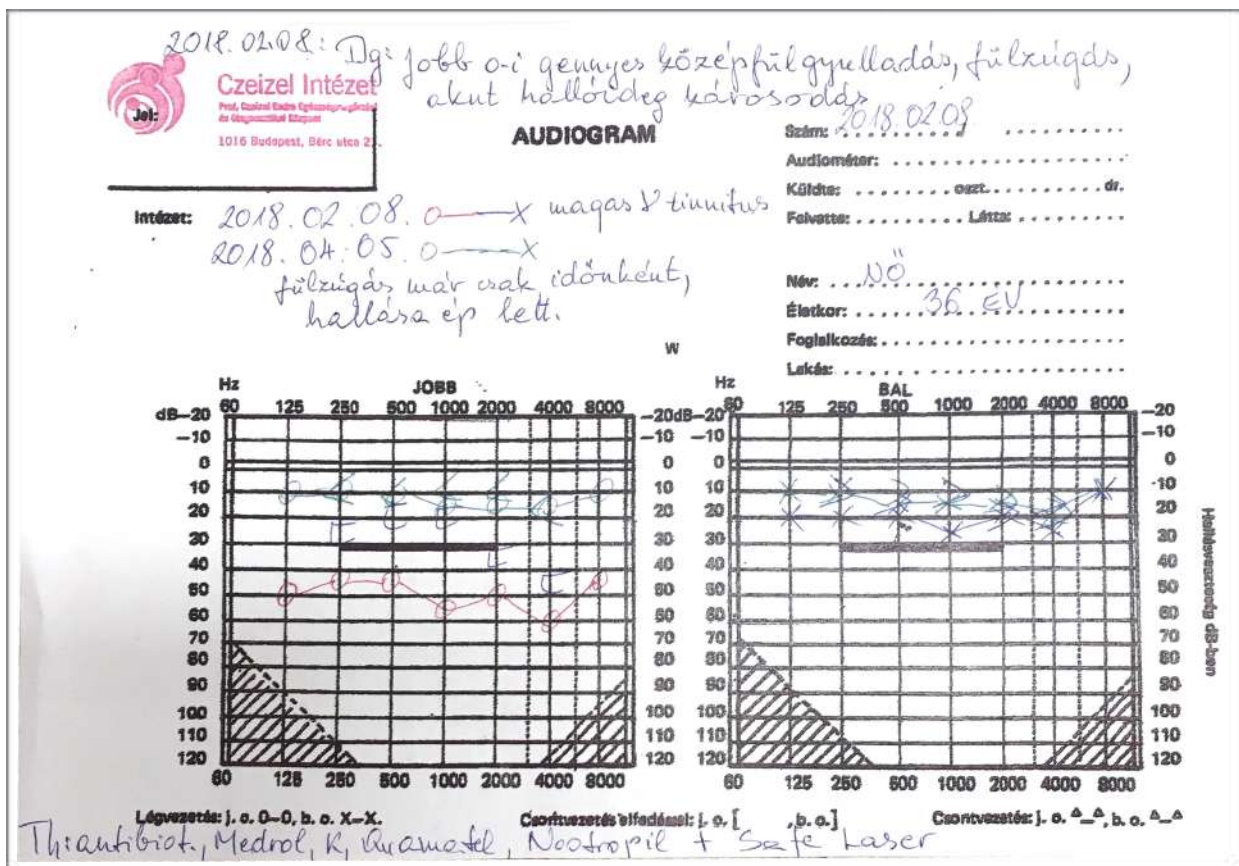 2018.02.08: Dg: jobb o-i gennyes középfülgyulladás, fülzúgás,
akut hallóideg károsodás
Jel:
Czeizel Intézet
Prof. Czeizel Endre Egészségmegőrzési
és Diagnosztikai Központ
1016 Budapest, Bérc utca 23.
AUDIOGRAM
Szám: 2018.02.08
Audiométer:
Küldte: oszt. dr.
Felvette: Látta:
Intézet: 2018.02.08. O—X magas tinnitus
2018.04.05. O—X
fülzúgás már csak időnként,
hallása ép lett.
Név: NŐ
Életkor: 36 ÉV
Foglalkozás:
Lakás:
W
Hz JOBB
dB–20 60 125 250 500 1000 2000 4000 8000 –20
–10 –10
0 0
10 10
20 20
30 30
40 40
50 50
60 60
70 70
80 80
90 90
100 100
110 110
120 120
60 125 250 500 1000 2000 4000 8000
Hz BAL
dB–20 60 125 250 500 1000 2000 4000 8000 –20
–10 –10
0 0
10 -10
20 20
30 30
40 40
50 50
60 60
70 70
80 80
90 90
100 100
110 110
120 120
60 125 250 500 1000 2000 4000 8000
Hallásveszteség dB-ben
Légvezetés: j. o. O–O, b. o. X–X.
Csontvezetés elfedéssel: j. o. [ , b. o. ]
Csontvezetés: j. o. Δ_Δ, b. o. Δ_Δ
Th: antibiot., Medrol, K, Quamatel, Nootropil + Safe Laser